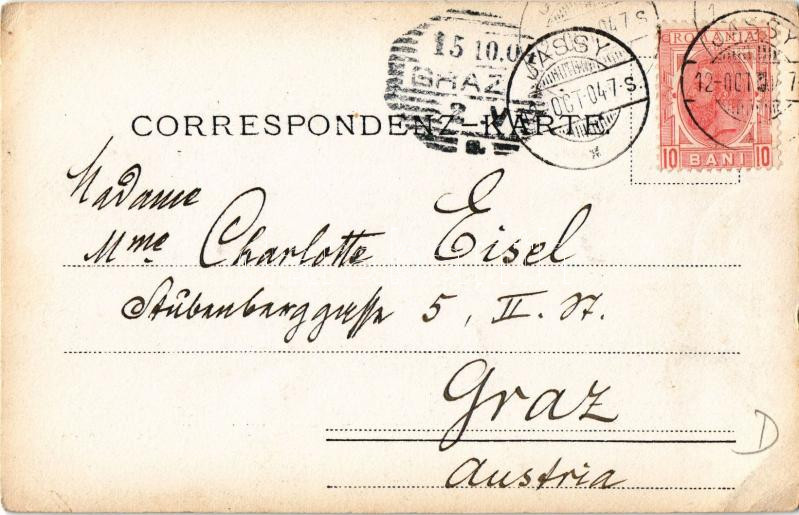 15 10.0
GRAZ
2
a.
JASSY
OCT-04 7-S.
047-S
ROMANIA
JASSY
12-OCT
10 BANI 10
CORRESPONDENZ-KARTE.
Madame
Mme Charlotte Eisel
Stubenberggasse 5, II. St.
Graz
Austria
D